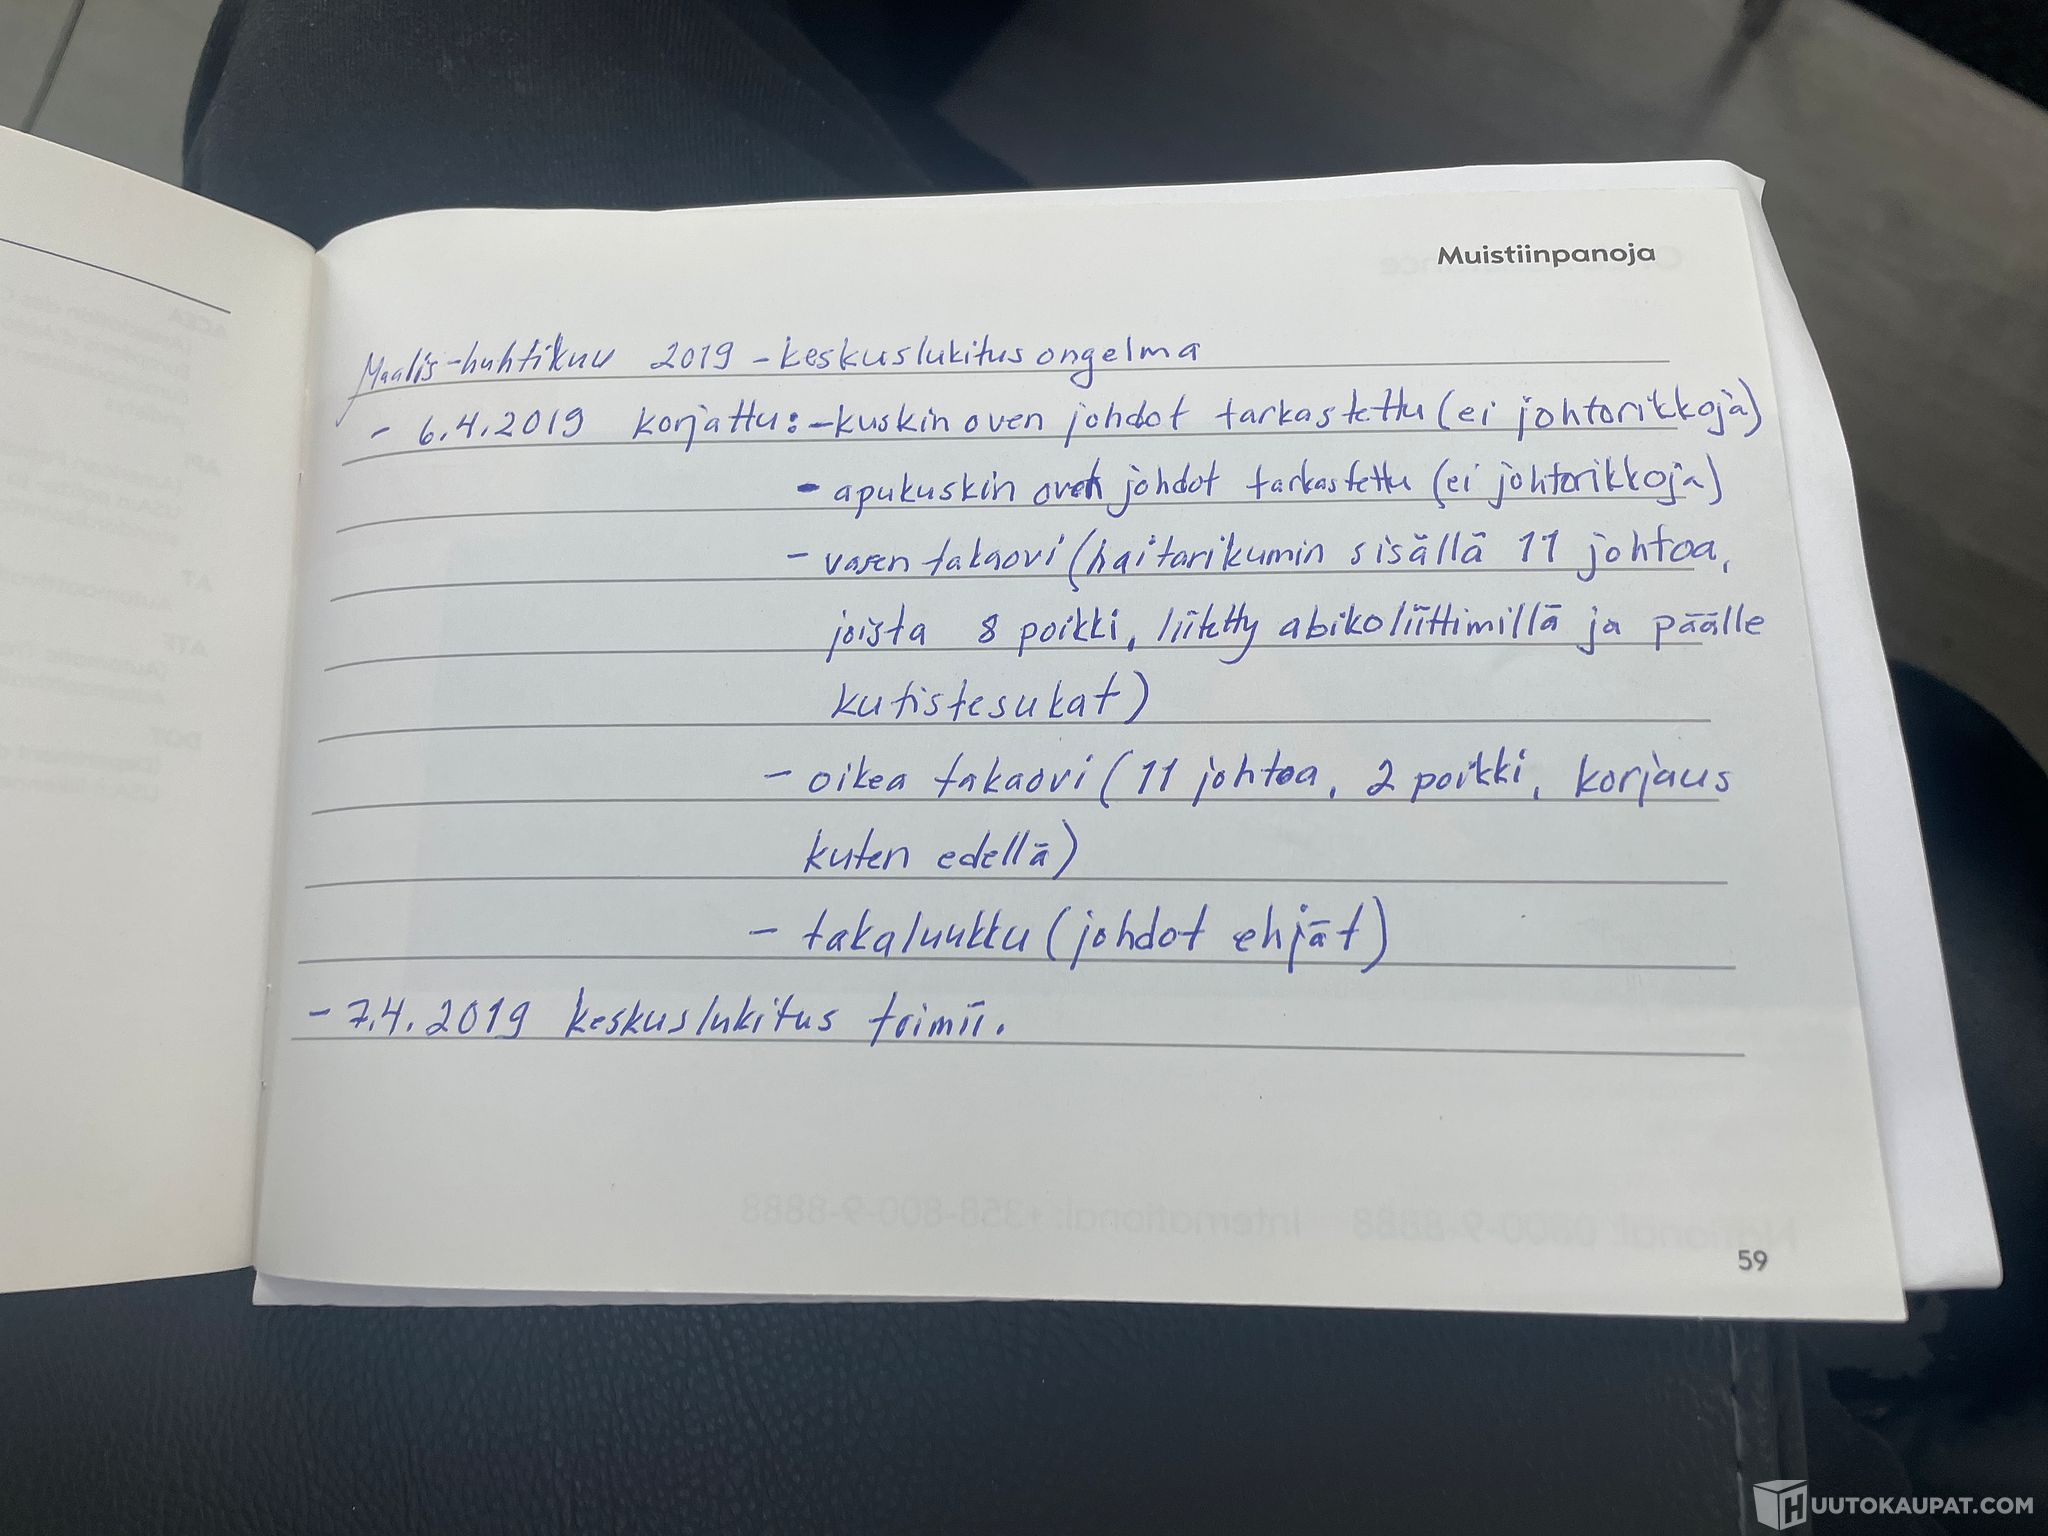 Muistiinpanoja
Maalis-huhtikuu 2019 - keskuslukitusongelma
- 6.4.2019 korjattu: - kuskin oven johdot tarkastettu (ei johtorikkoja)
- apukuskin oven johdot tarkastettu (ei johtorikkoja)
- vasen takaovi (haitarikumin sisällä 11 johtoa,
joista 8 poikki, liitetty abikoliittimillä ja päälle
kutistesukat)
- oikea takaovi (11 johtoa, 2 poikki, korjaus
kuten edellä)
- takaluukku (johdot ehjät)
- 7.4.2019 keskuslukitus toimii.
National: 0800-9-8888 International: +358-800-9-8888
59
HUUTOKAUPAT.COM